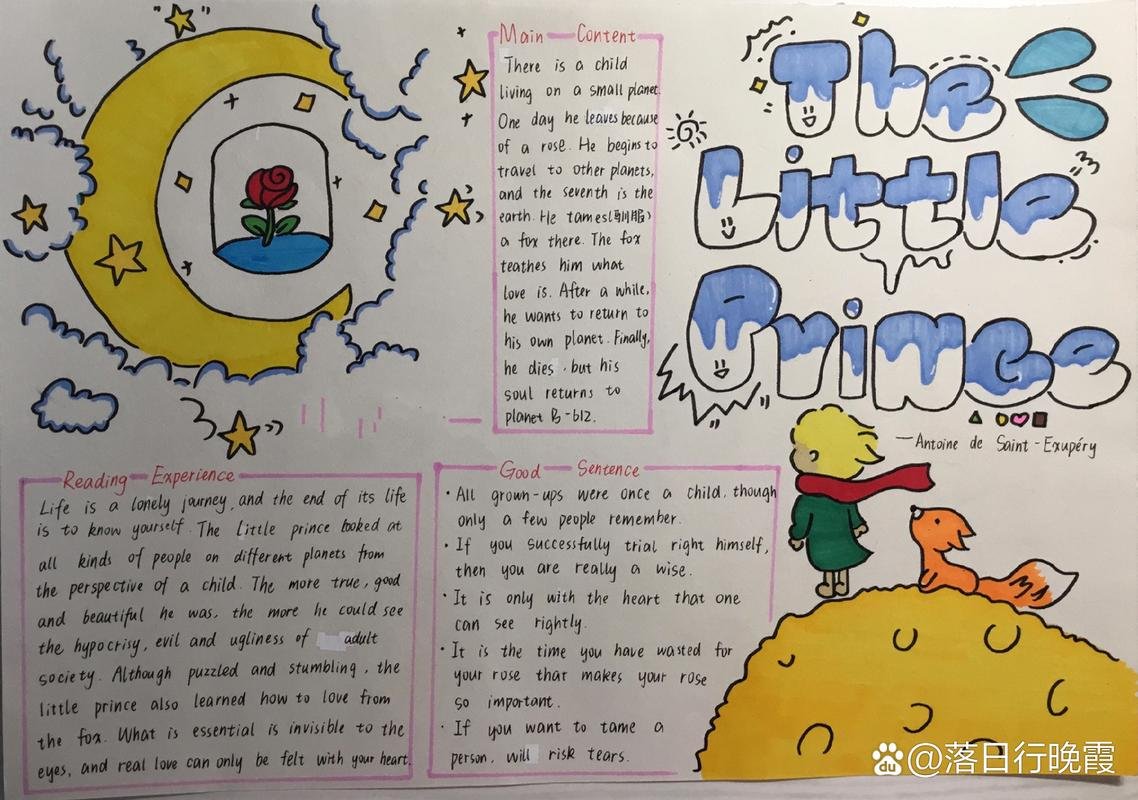 The
Little
Prince
—Antoine de Saint-Exupéry
Main Content
There is a child
living on a small planet.
One day he leaves because
of a rose. He begins to
travel to other planets,
and the seventh is the
earth. He tames(驯服)
a fox there. The fox
teathes him what
love is. After a while,
he wants to return to
his own planet. Finally,
he dies, but his
soul returns to
planet B-612.
Reading Experience
Life is a lonely journey, and the end of its life
is to know yourself. The Little prince looked at
all kinds of people on different planets from
the perspective of a child. The more true, good
and beautiful he was, the more he could see
the hypocrisy, evil and ugliness of adult
society. Although puzzled and stumbling, the
little prince also learned how to love from
the fox. What is essential is invisible to the
eyes, and real love can only be felt with your heart.
Good Sentence
· All grown-ups were once a child, though
only a few people remember.
· If you successfully trial right himself,
then you are really a wise.
· It is only with the heart that one
can see rightly.
· It is the time you have wasted for
your rose that makes your rose
so important.
· If you want to tame a
person, will risk tears.
Bai du @落日行晚霞